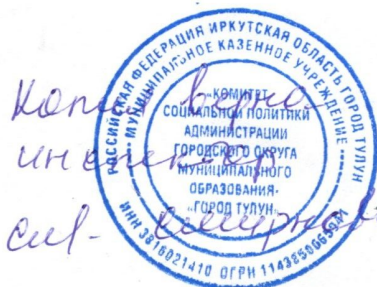 РОССИЙСКАЯ ФЕДЕРАЦИЯ ИРКУТСКАЯ ОБЛАСТЬ ГОРОД ТУЛУН
МУНИЦИПАЛЬНОЕ КАЗЕННОЕ УЧРЕЖДЕНИЕ
«КОМИТЕТ
СОЦИАЛЬНОЙ ПОЛИТИКИ
АДМИНИСТРАЦИИ
ГОРОДСКОГО ОКРУГА
МУНИЦИПАЛЬНОГО
ОБРАЗОВАНИЯ-
«ГОРОД ТУЛУН»
ИНН 3816021410 ОГРН
Копия верна
инспектор